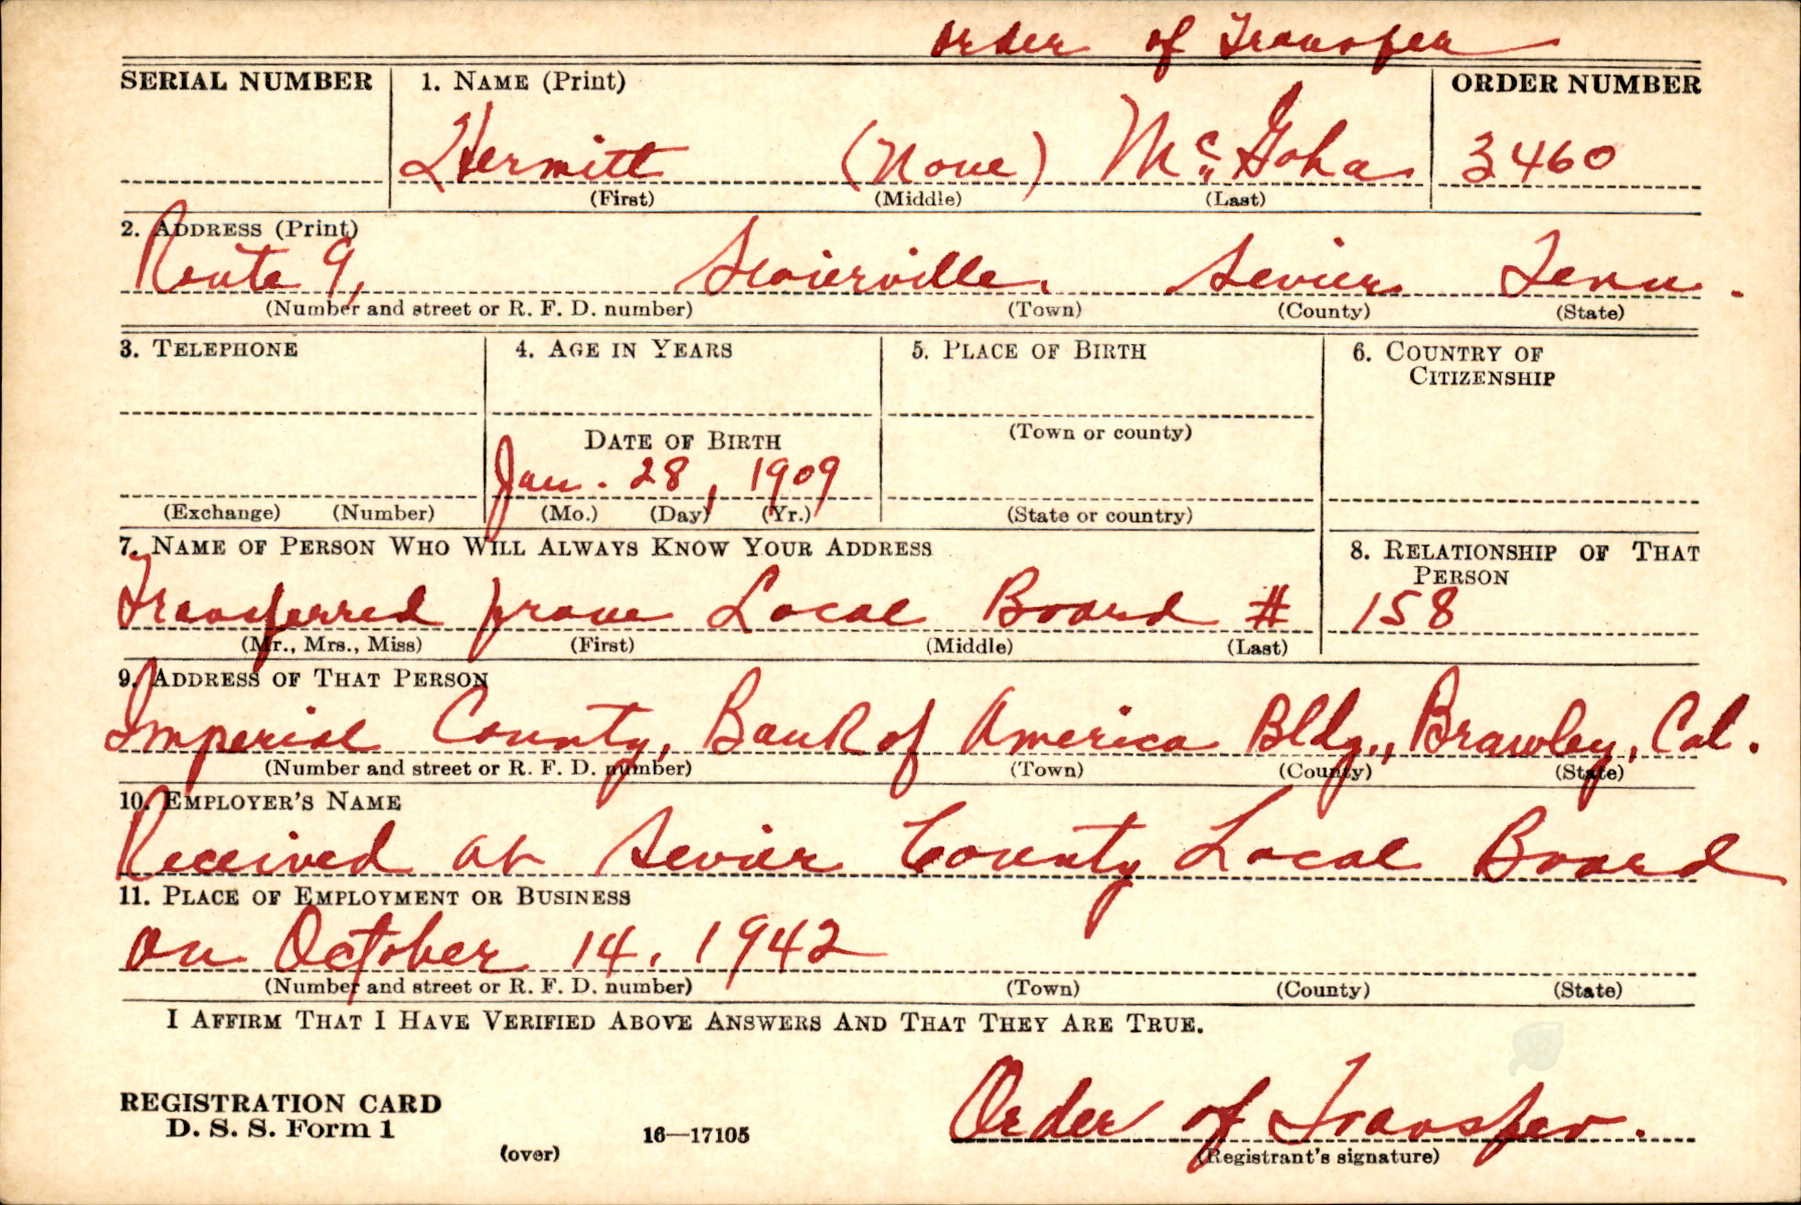 Order of Transfer
SERIAL NUMBER 1. NAME (Print) ORDER NUMBER
Hermitt (None) McGaha 3460
(First) (Middle) (Last)
2. ADDRESS (Print)
Route 9, Sevierville, Sevier Tenn.
(Number and street or R. F. D. number) (Town) (County) (State)
3. TELEPHONE 4. AGE IN YEARS 5. PLACE OF BIRTH 6. COUNTRY OF
CITIZENSHIP
(Town or county)
DATE OF BIRTH
Jan. 28, 1909
(Exchange) (Number) (Mo.) (Day) (Yr.) (State or country)
7. NAME OF PERSON WHO WILL ALWAYS KNOW YOUR ADDRESS 8. RELATIONSHIP OF THAT
PERSON
Transferred from Local Board # 158
(Mr., Mrs., Miss) (First) (Middle) (Last)
9. ADDRESS OF THAT PERSON
Imperial County, Bank of America Bldg., Brawley, Cal.
(Number and street or R. F. D. number) (Town) (County) (State)
10. EMPLOYER'S NAME
Received at Sevier County Local Board
11. PLACE OF EMPLOYMENT OR BUSINESS
on October 14, 1942
(Number and street or R. F. D. number) (Town) (County) (State)
I AFFIRM THAT I HAVE VERIFIED ABOVE ANSWERS AND THAT THEY ARE TRUE.
REGISTRATION CARD
D. S. S. Form 1 16—17105 Order of Transfer.
(over) (Registrant's signature)